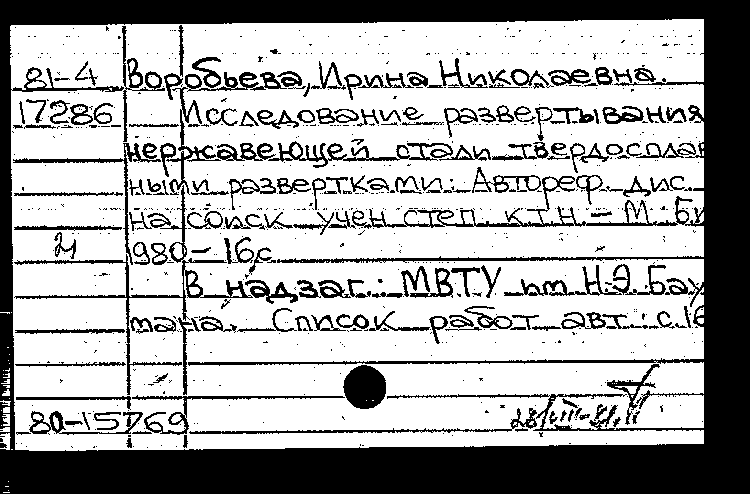 81-4 Воробьева, Ирина Николаевна.
17286 Исследование развертывания
нержавеющей стали твердосплав
ными развертками: Автореф. дис.
на соиск. учен. степ. к.т.н. – М.: Б.и
980 – 16с
В надзаг.: МВТУ им Н.Э. Бау
мана. Список работ авт.: с.16
80-15769 28/VIII-81